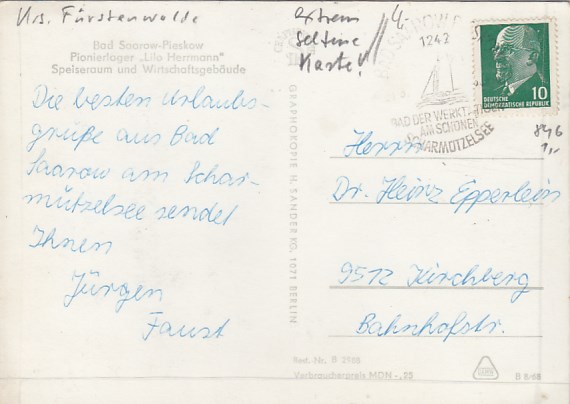 Krs. Fürstenwalde
extrem
seltene
Karte!
Bad Saarow-Pieskow
Pionierlager „Lilo Herrmann"
Speiseraum und Wirtschaftsgebäude
Die besten Urlaubs-
grüße aus Bad
Saarow am Schar-
mützelsee sendet
Ihnen
Jürgen
Faust
GRAPHOKOPIE H. SANDER KG, 1071 BERLIN
1242
BAD DER WERKTÄTIGEN
AM SCHÖNEN
SCHARMÜTZELSEE
10
DEUTSCHE
DEMOKRATISCHE REPUBLIK
846
1,-
Herrn
Dr. Heinz Epperlein
9512 Kirchberg
Bahnhofstr.
Best. Nr. B 2988
Verbraucherpreis MDN -,25
B 8/68